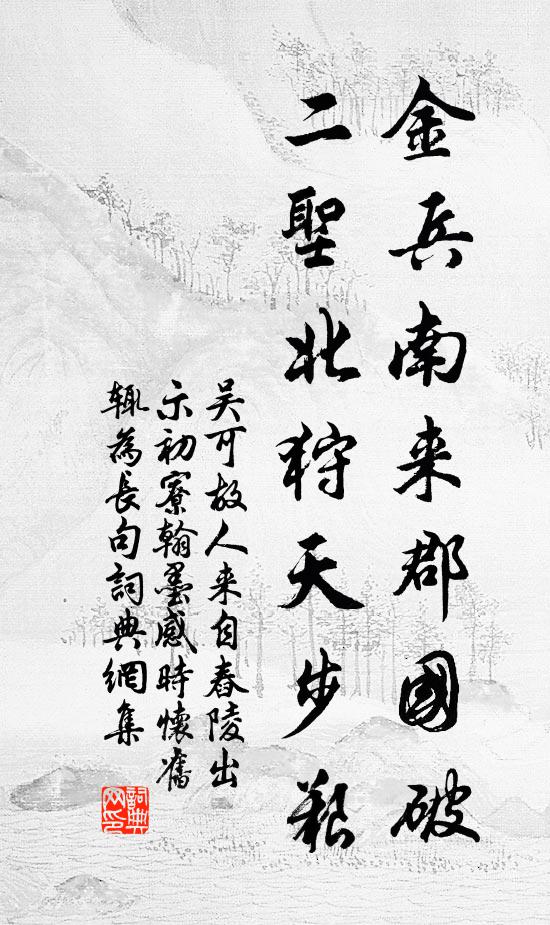 金兵南来郡國破
二聖北狩天步艱
吴可故人来自舂陵出
示初寮翰墨感時懷舊
輒為長句詞典網集
詞典网印